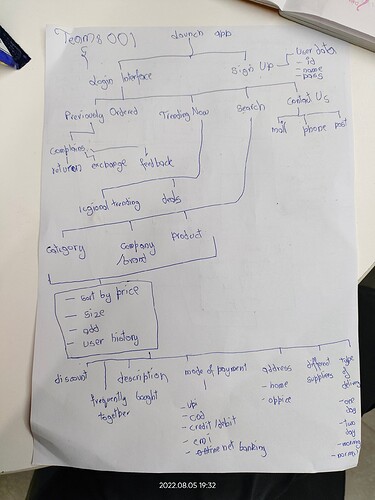 Teams 001
Launch app
Login Interface
Sign Up
User data
- id
- name
- pass
Previously Ordered
Trending Now
Search
Contact Us
mail
phone
post
Complains
return
exchange
feedback
regional trending
deals
Category
Company
/brand
product
- sort by price
- size
- add
- user history
discount
description
frequently bought
together
mode of payment
- upi
- cod
- credit/debit
- emi
- net banking
address
- home
- office
different
suppliers
type
of
delivery
- one
day
- two
day
- normal